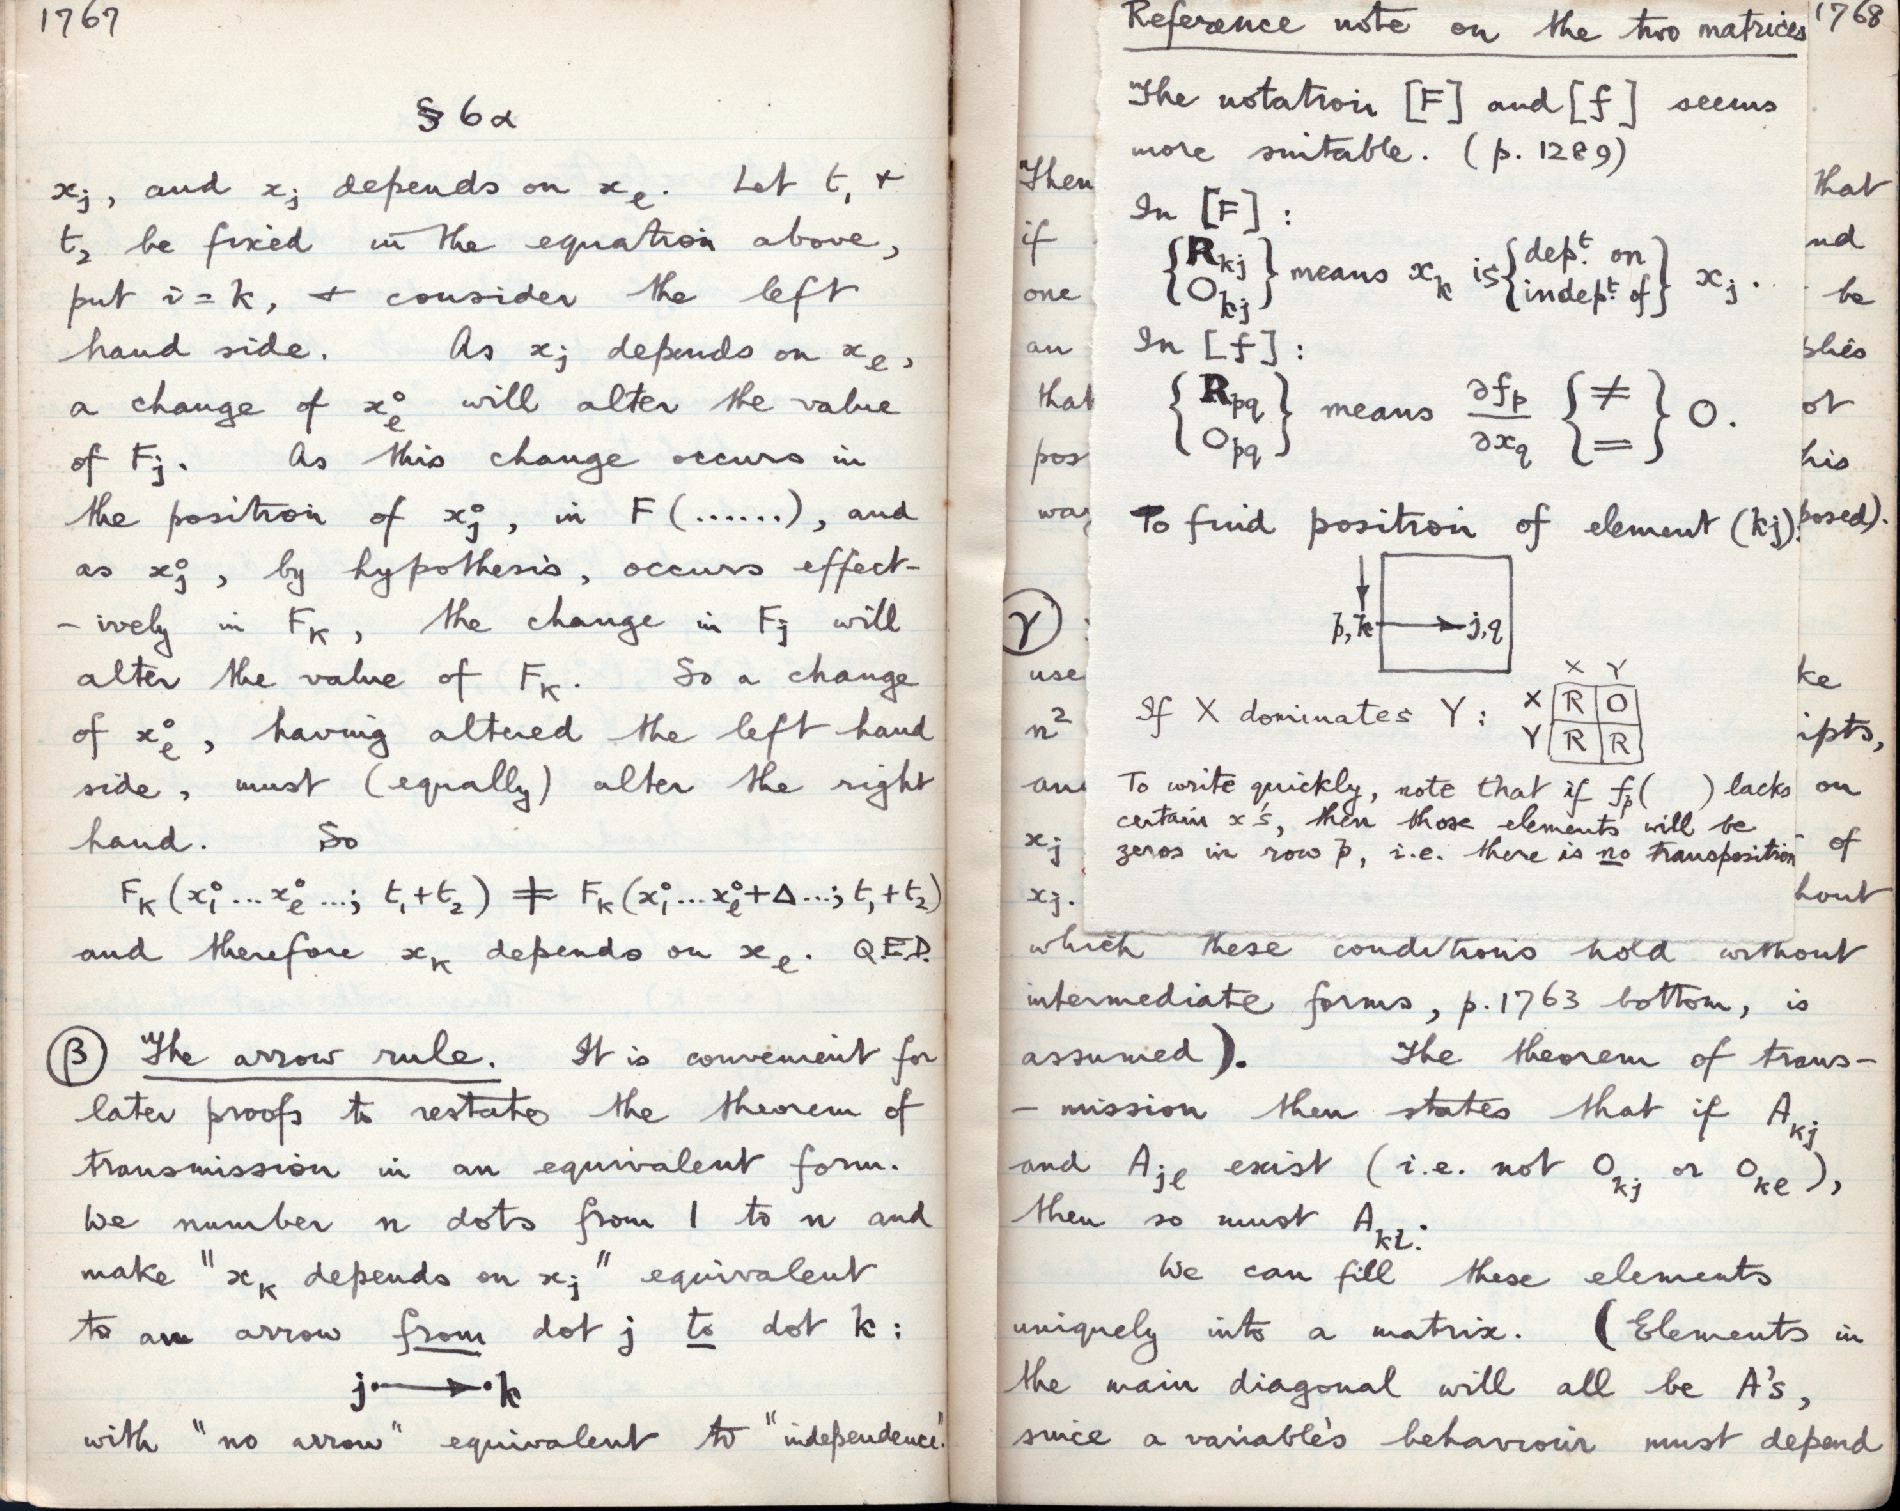 1767
§ 6α
xj, and xj depends on xe. Let t1 +
t2 be fixed in the equation above,
put i = k, + consider the left
hand side. As xj depends on xe,
a change of xe° will alter the value
of Fj. As this change occurs in
the position of xj°, in F(......), and
as xj°, by hypothesis, occurs effect-
-ively in FK, the change in Fj will
alter the value of FK. So a change
of xe°, having altered the left hand
side, must (equally) alter the right
hand. So
FK(x1°...xe°...; t1+t2) ≠ FK(x1°...xe°+Δ...; t1+t2)
and therefore xK depends on xe. Q.E.D.
β The arrow rule. It is convenient for
later proofs to restate the theorem of
transmission in an equivalent form.
We number n dots from 1 to n and
make "xK depends on xj" equivalent
to an arrow from dot j to dot k:
j → k
with "no arrow" equivalent to "independence."
1768
Reference note on the two matrices
The notation [F] and [f] seems
more suitable. (p. 1289)
In [F]:
{Rkj Okj} means xk is {dept. on indept. of} xj.
In [f]:
{Rpq Opq} means ∂fp/∂xq {≠ =} 0.
To find position of element (kj):
p, k → j, q
X Y
If X dominates Y: X R O
Y R R
To write quickly, note that if fp( ) lacks
certain x's, then those elements will be
zeros in row p, i.e. there is no transposition
Then that
if nd
one be
an plies
that ot
pos his
way posed).
γ
use ke
n² ipts,
and on
xj of
xj. hout
which these conditions hold without
intermediate forms, p. 1763 bottom, is
assumed). The theorem of trans-
-mission then states that if Akj
and Aje exist (i.e. not Okj or Oke),
then so must Akl.
We can fill these elements
uniquely into a matrix. (Elements in
the main diagonal will all be A's,
since a variable's behaviour must depend